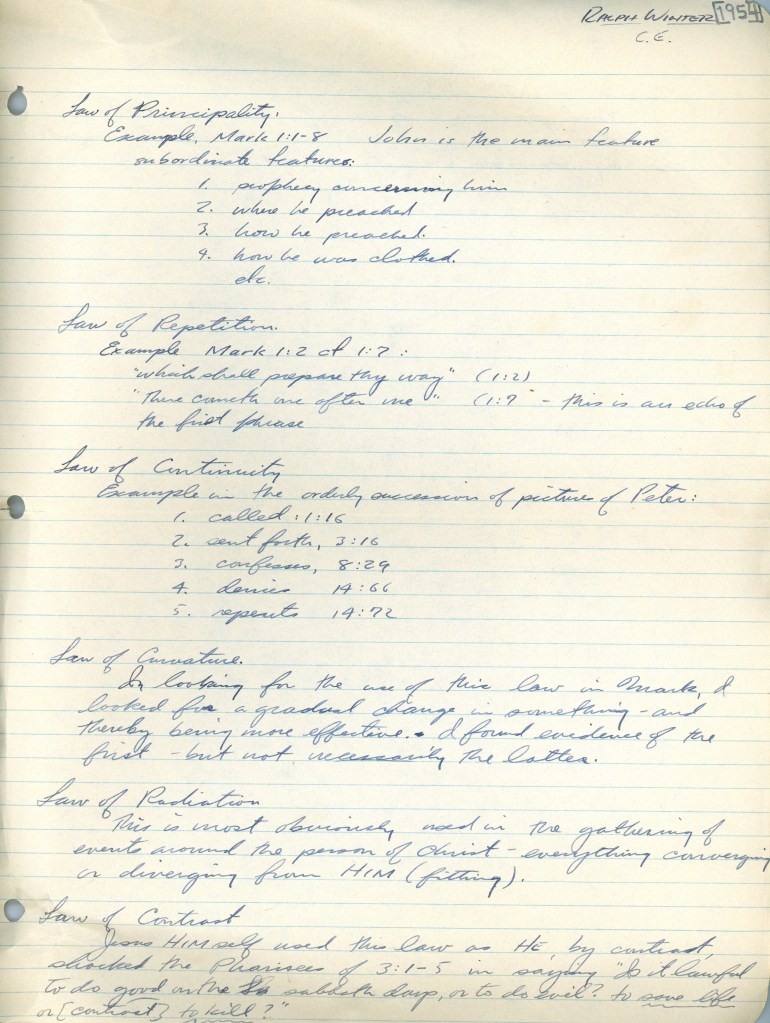 RALPH WINTER [1954]
C.E.
Law of Principality:
Example, Mark 1:1-8 John is the main feature
subordinate features:
1. prophecy concerning him
2. where he preached
3. how he preached.
4. how he was clothed.
etc.
Law of Repetition.
Example Mark 1:2 cf 1:7:
"which shall prepare thy way" (1:2)
"There cometh one after me" (1:7 - this is an echo of
the first phrase
Law of Continuity
Example in the orderly succession of pictures of Peter:
1. called: 1:16
2. sent forth, 3:16
3. confesses, 8:29
4. denies 14:66
5. repents 14:72
Law of Curvature.
In looking for the use of this law in Mark, I
looked for a gradual change in something - and
thereby being more effective. I found evidence of the
first - but not necessarily the latter.
Law of Radiation
This is most obviously used in the gathering of
events around the person of Christ - everything converging
or diverging from HIM (fitting).
Law of Contrast
Jesus HIMself used this law as HE, by contrast,
shocked the Pharisees of 3:1-5 in saying "Is it lawful
to do good on the sabbath days, or to do evil? to save life
or [contrast] to kill?"